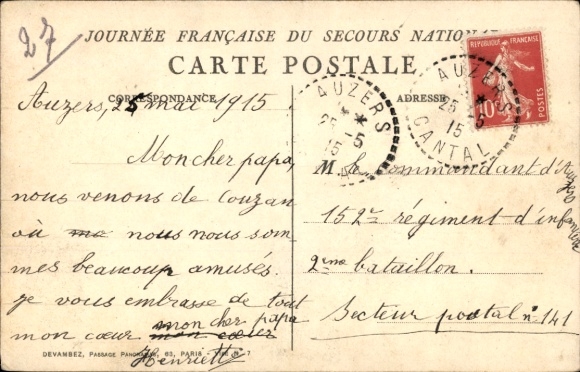 27
JOURNÉE FRANÇAISE DU SECOURS NATIONAL
CARTE POSTALE
CORRESPONDANCE
ADRESSE
RÉPUBLIQUE FRANÇAISE
10c
POSTES
AUZERS
25 -5
15
CANTAL
AUZERS
25 -5
15
Auzers, 25 mai 1915.
Mon cher papa,
nous venons de Couzan
où nous nous som
mes beaucoup amusés.
je vous embrasse de tout
mon cœur mon cher papa
mon cœur
Henriette
M. le commandant d'
152e régiment d'infanterie
2me bataillon.
Secteur postal n° 141
DEVAMBEZ, PASSAGE PANORAMAS, 63, PARIS